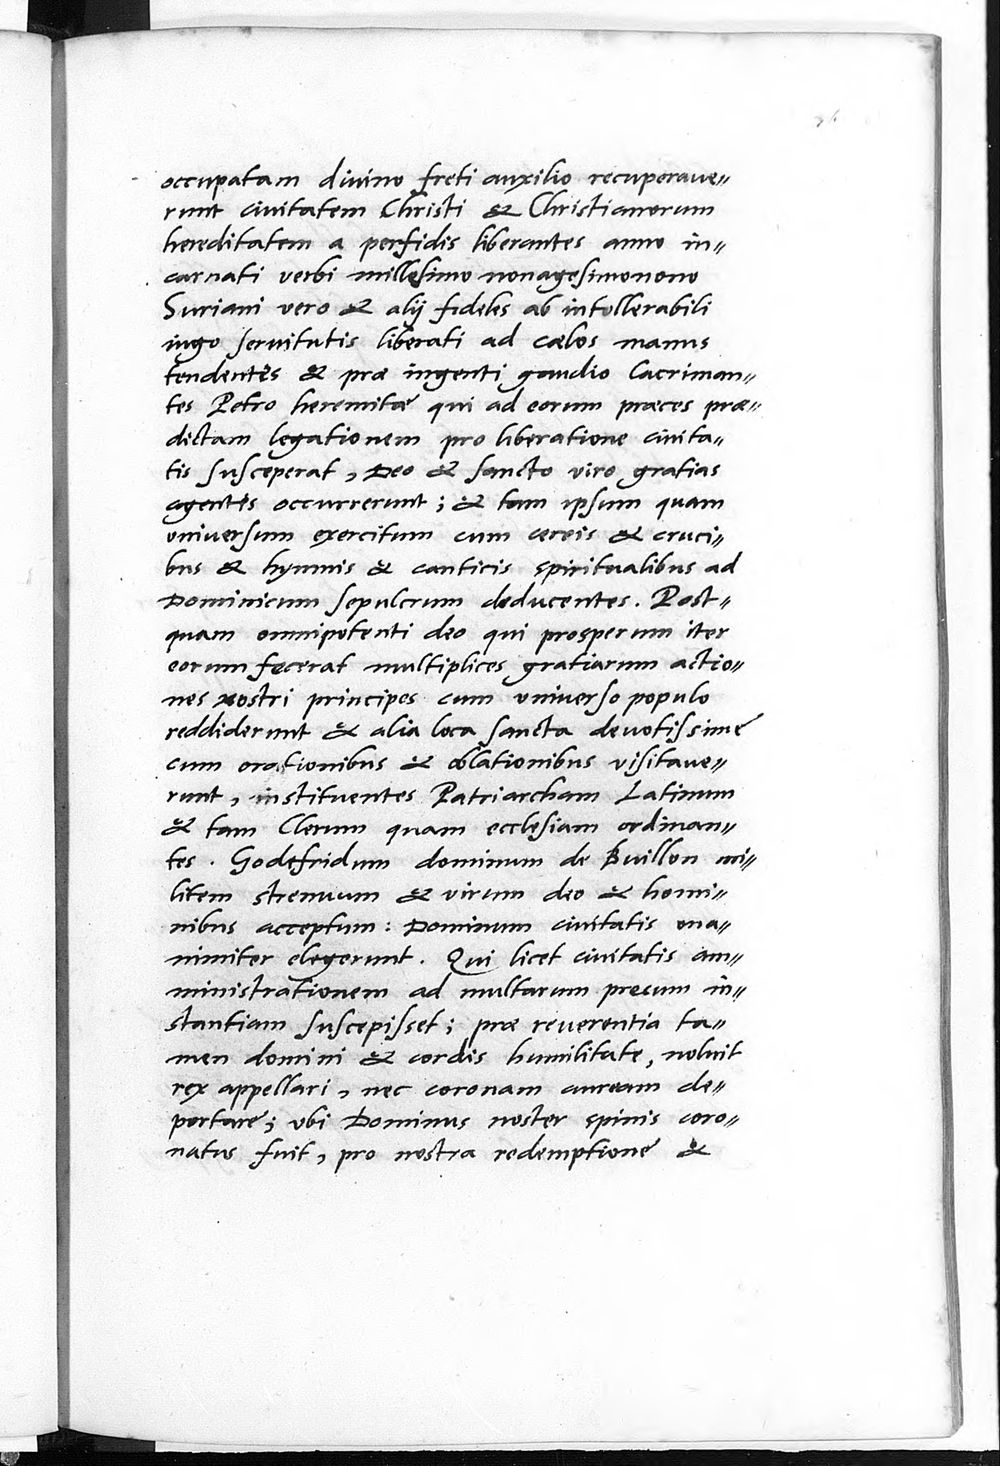 occupatam diuino freti auxilio recuperaue„
runt ciuitatem Christi & Christianorum
hereditatem a perfidis liberantes anno in„
carnati verbi millesimo nonagesimonono
Suriani vero & alij fideles ab intollerabili
iugo seruitutis liberati ad cælos manus
tendentes & præ ingenti gaudio lacriman„
tes Petro heremitæ qui ad eorum præces præ„
dictam legationem pro liberatione ciuita„
tis susceperat, Deo & sancto viro gratias
agentes occurrerunt; & tam ipsum quam
vniuersum exercitum cum cereis & cruci„
bus & hymnis & canticis spiritualibus ad
Dominicum sepulcrum deducentes. Post„
quam omnipotenti deo qui prosperum iter
eorum fecerat multiplices gratiarum actio„
nes nostri principes cum vniuerso populo
reddiderunt & alia loca sancta deuotissime
cum orationibus & oblationibus visitaue„
runt, instituentes Patriarcham Latinum
& tam Clerum quam ecclesiam ordinan„
tes. Godefridum dominum de Buillon mi„
litem strenuum & virum deo & homi„
nibus acceptum: Dominum ciuitatis vna„
nimiter elegerunt. Qui licet ciuitatis am„
ministrationem ad multarum presum in„
stantiam suscepisset; præ reuerentia ta„
men domini & cordis humilitate, noluit
rex appellari, nec coronam auream de„
portare; vbi Dominus noster spinis coro„
natus fuit, pro nostra redemptione &